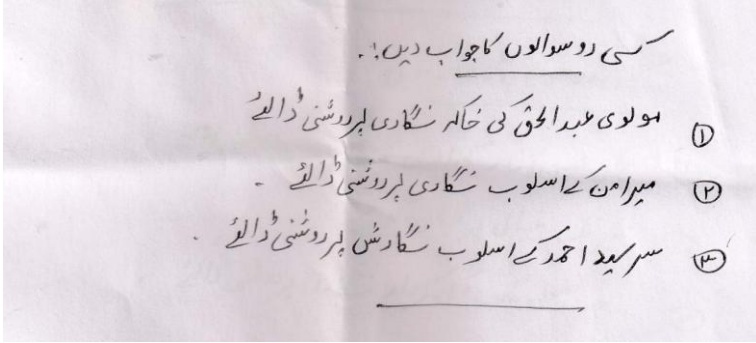 کسی دو سوالوں کا جواب دیں:۔
① مولوی عبدالحق کی خاکہ نگاری پر روشنی ڈالئے
② میرامن کے اسلوب نگاری پر روشنی ڈالئے ۔
③ سرسید احمد کے اسلوب نگارش پر روشنی ڈالئے ۔